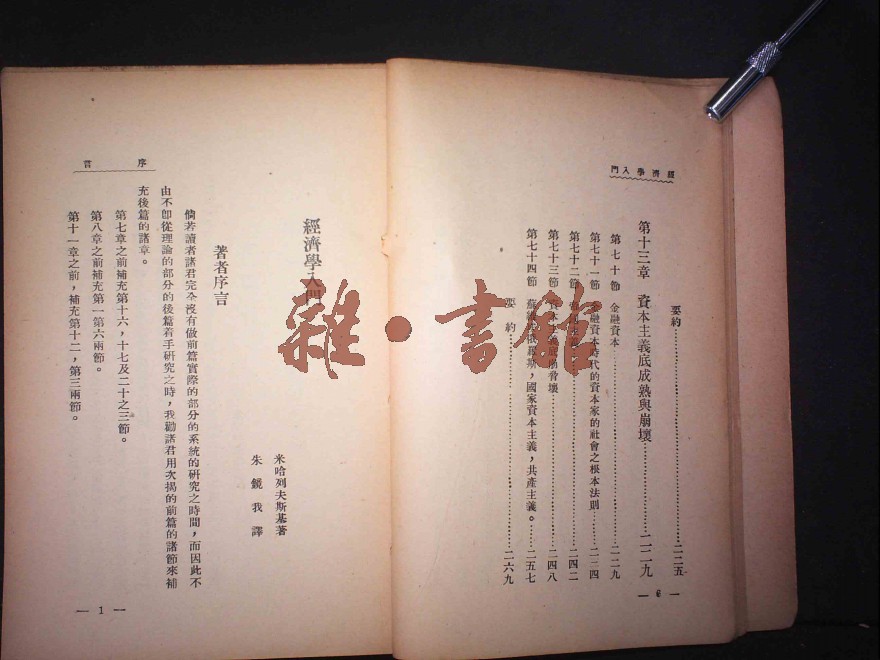 經濟學入門
要約……二二五
第十三章 資本主義底成熟與崩壞……二二九
第七十節 金融資本……二二九
第七十一節 金融資本時代的資本家的社會之根本法則……二三四
第七十二節……二四二
第七十三節 資本主義底崩壞……二四八
第七十四節 蘇維埃俄羅斯，國家資本主義，共產主義。……二五七
要約……二六九
— 6 —
雜·書館
序言
經濟學入門
米哈列夫斯基著
朱鏡我譯
著者序言
倘若讀者諸君完全沒有做前篇實際的部分的系統的研究之時間，而因此不
由不卽從理論的部分的後篇着手研究之時，我勸諸君用次揭的前篇的諸節來補
充後篇的諸章。
第七章之前補充第十六，十七及二十之三節。
第八章之前補充第一第六兩節。
第十一章之前，補充第十二，第三兩節。
— 1 —